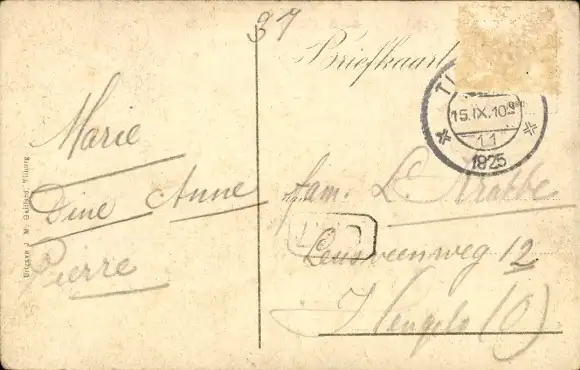 37
Briefkaart
TI
15.IX.10
11
1925
Marie
Dine Anne
Pierre
Uitgave J. M. Tilburg
fam. L. Krabbe
12
Hengelo (O)